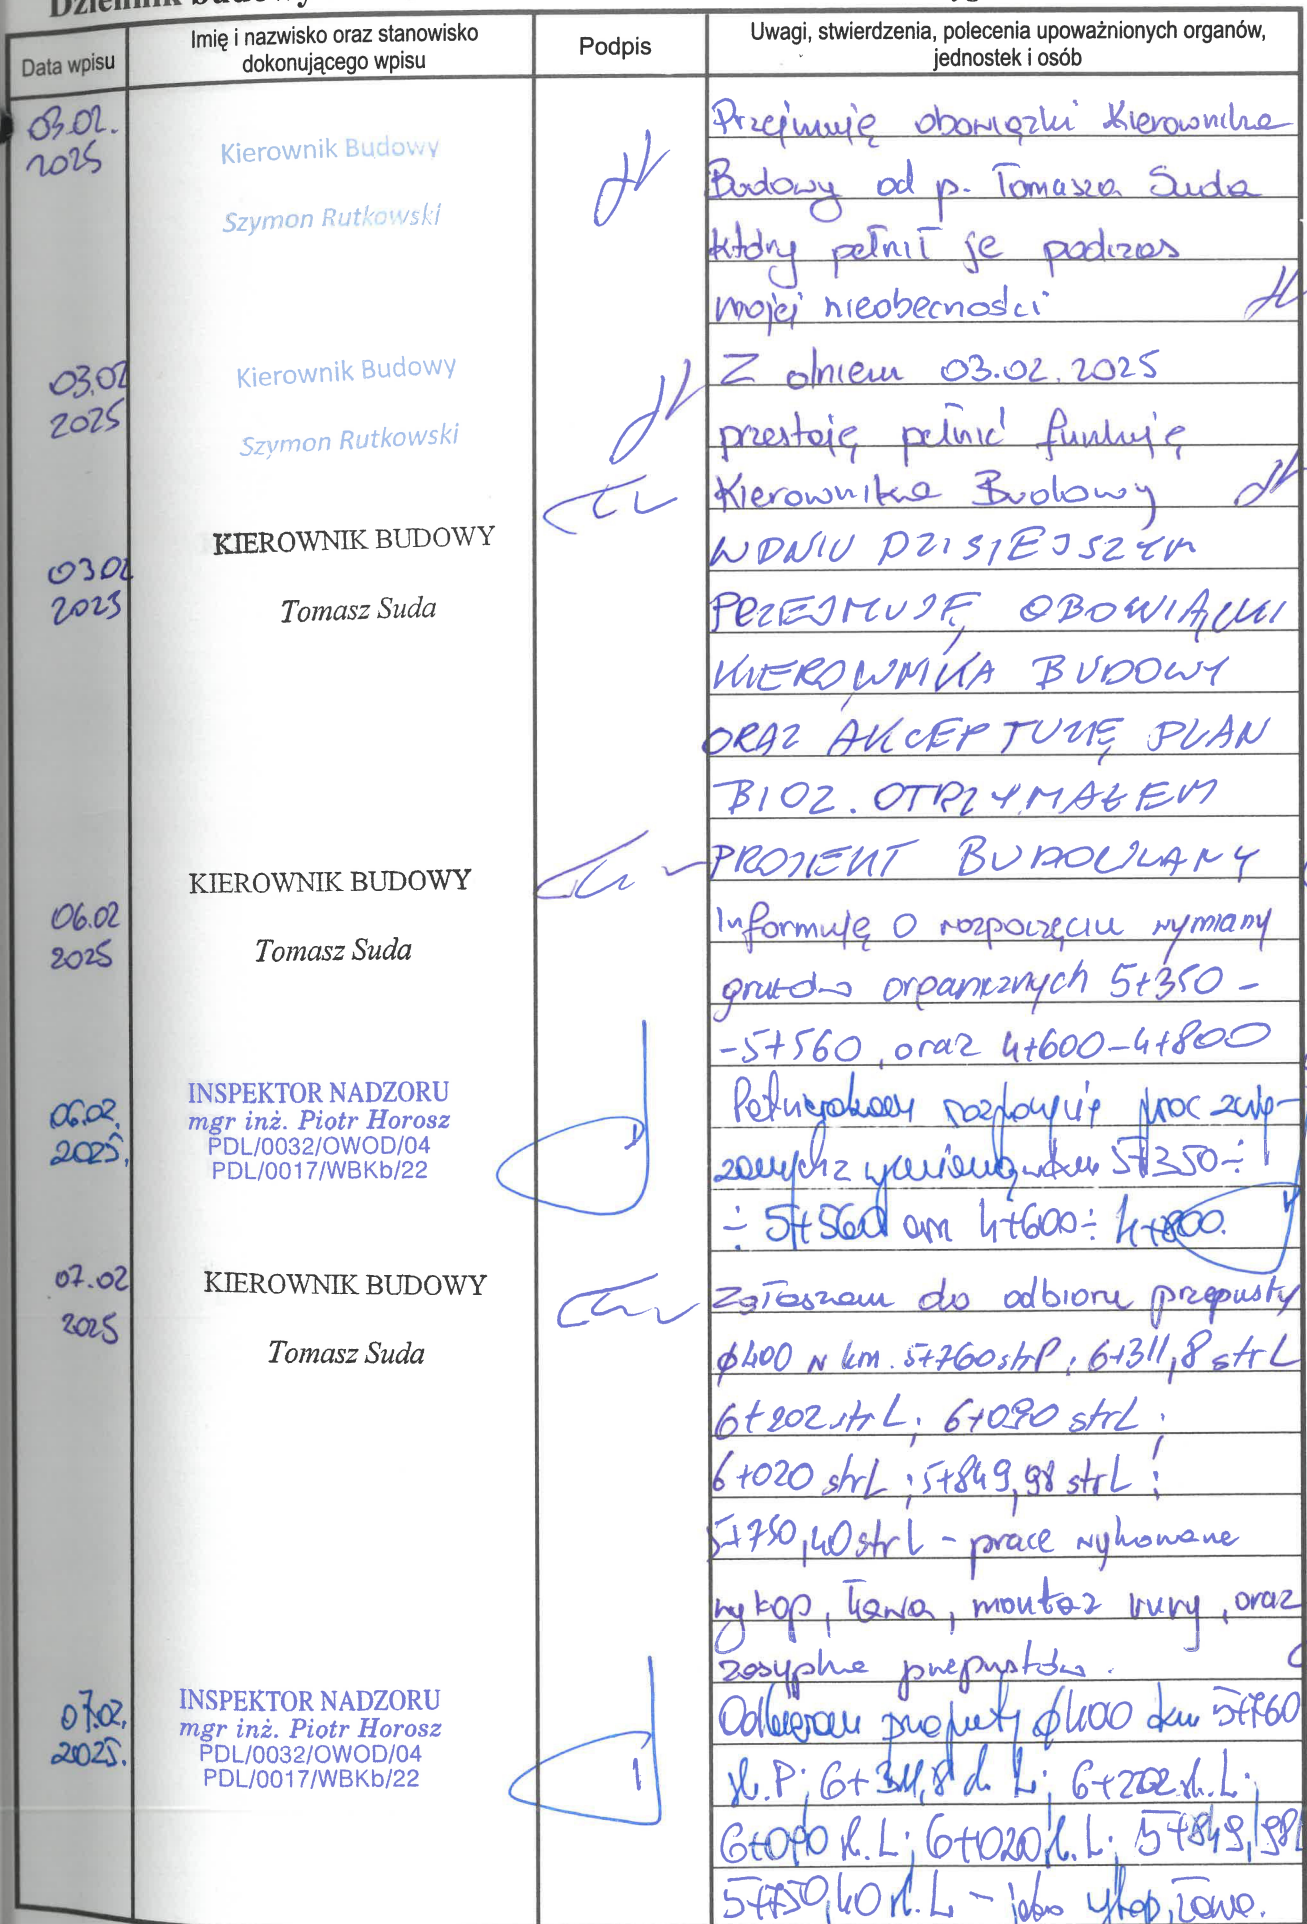 Dziennik budowy
Data wpisu
Imię i nazwisko oraz stanowisko
dokonującego wpisu
Podpis
Uwagi, stwierdzenia, polecenia upoważnionych organów,
jednostek i osób
03.02.
2025
Kierownik Budowy
Szymon Rutkowski
Przejmuję obowiązki Kierownika
Budowy od p. Tomasza Suda
który pełnił je podczas
mojej nieobecności
03.02
2025
Kierownik Budowy
Szymon Rutkowski
Z dniem 03.02.2025
przestaję pełnić funkcję
Kierownika Budowy
03.02
2025
KIEROWNIK BUDOWY
Tomasz Suda
W DNIU DZISIEJSZYM
PRZEJMUJĘ OBOWIĄZKI
KIEROWNIKA BUDOWY
ORAZ AKCEPTUJĘ PLAN
BIOZ. OTRZYMAŁEM
PROJEKT BUDOWLANY
06.02
2025
KIEROWNIK BUDOWY
Tomasz Suda
Informuję o rozpoczęciu wymiany
gruntów organicznych 5+350 -
- 5+560, oraz 4+600-4+800
06.02.
2025.
INSPEKTOR NADZORU
mgr inż. Piotr Horosz
PDL/0032/OWOD/04
PDL/0017/WBKb/22
prac zwią-
zanych z wymianą w km 5+350÷
÷ 5+560 oraz 4+600÷ 4+800.
07.02
2025
KIEROWNIK BUDOWY
Tomasz Suda
Zgłaszam do odbioru przepusty
φ400 w km. 5+760 strP; 6+311,8 strL
6+202 strL; 6+090 strL;
6+020 strL; 5+849,98 strL;
5+750,40 strL - prace wykonane
wykop, ława, montaż rury, oraz
zasypka przepustów.
07.02.
2025.
INSPEKTOR NADZORU
mgr inż. Piotr Horosz
PDL/0032/OWOD/04
PDL/0017/WBKb/22
Odbieram przepusty φ400 w km 5+760
st. P; 6+311,8 st. L; 6+202 st. L;
6+090 st. L; 6+020 st. L; 5+849,98
5+750,40 st. L - wykop, ława.